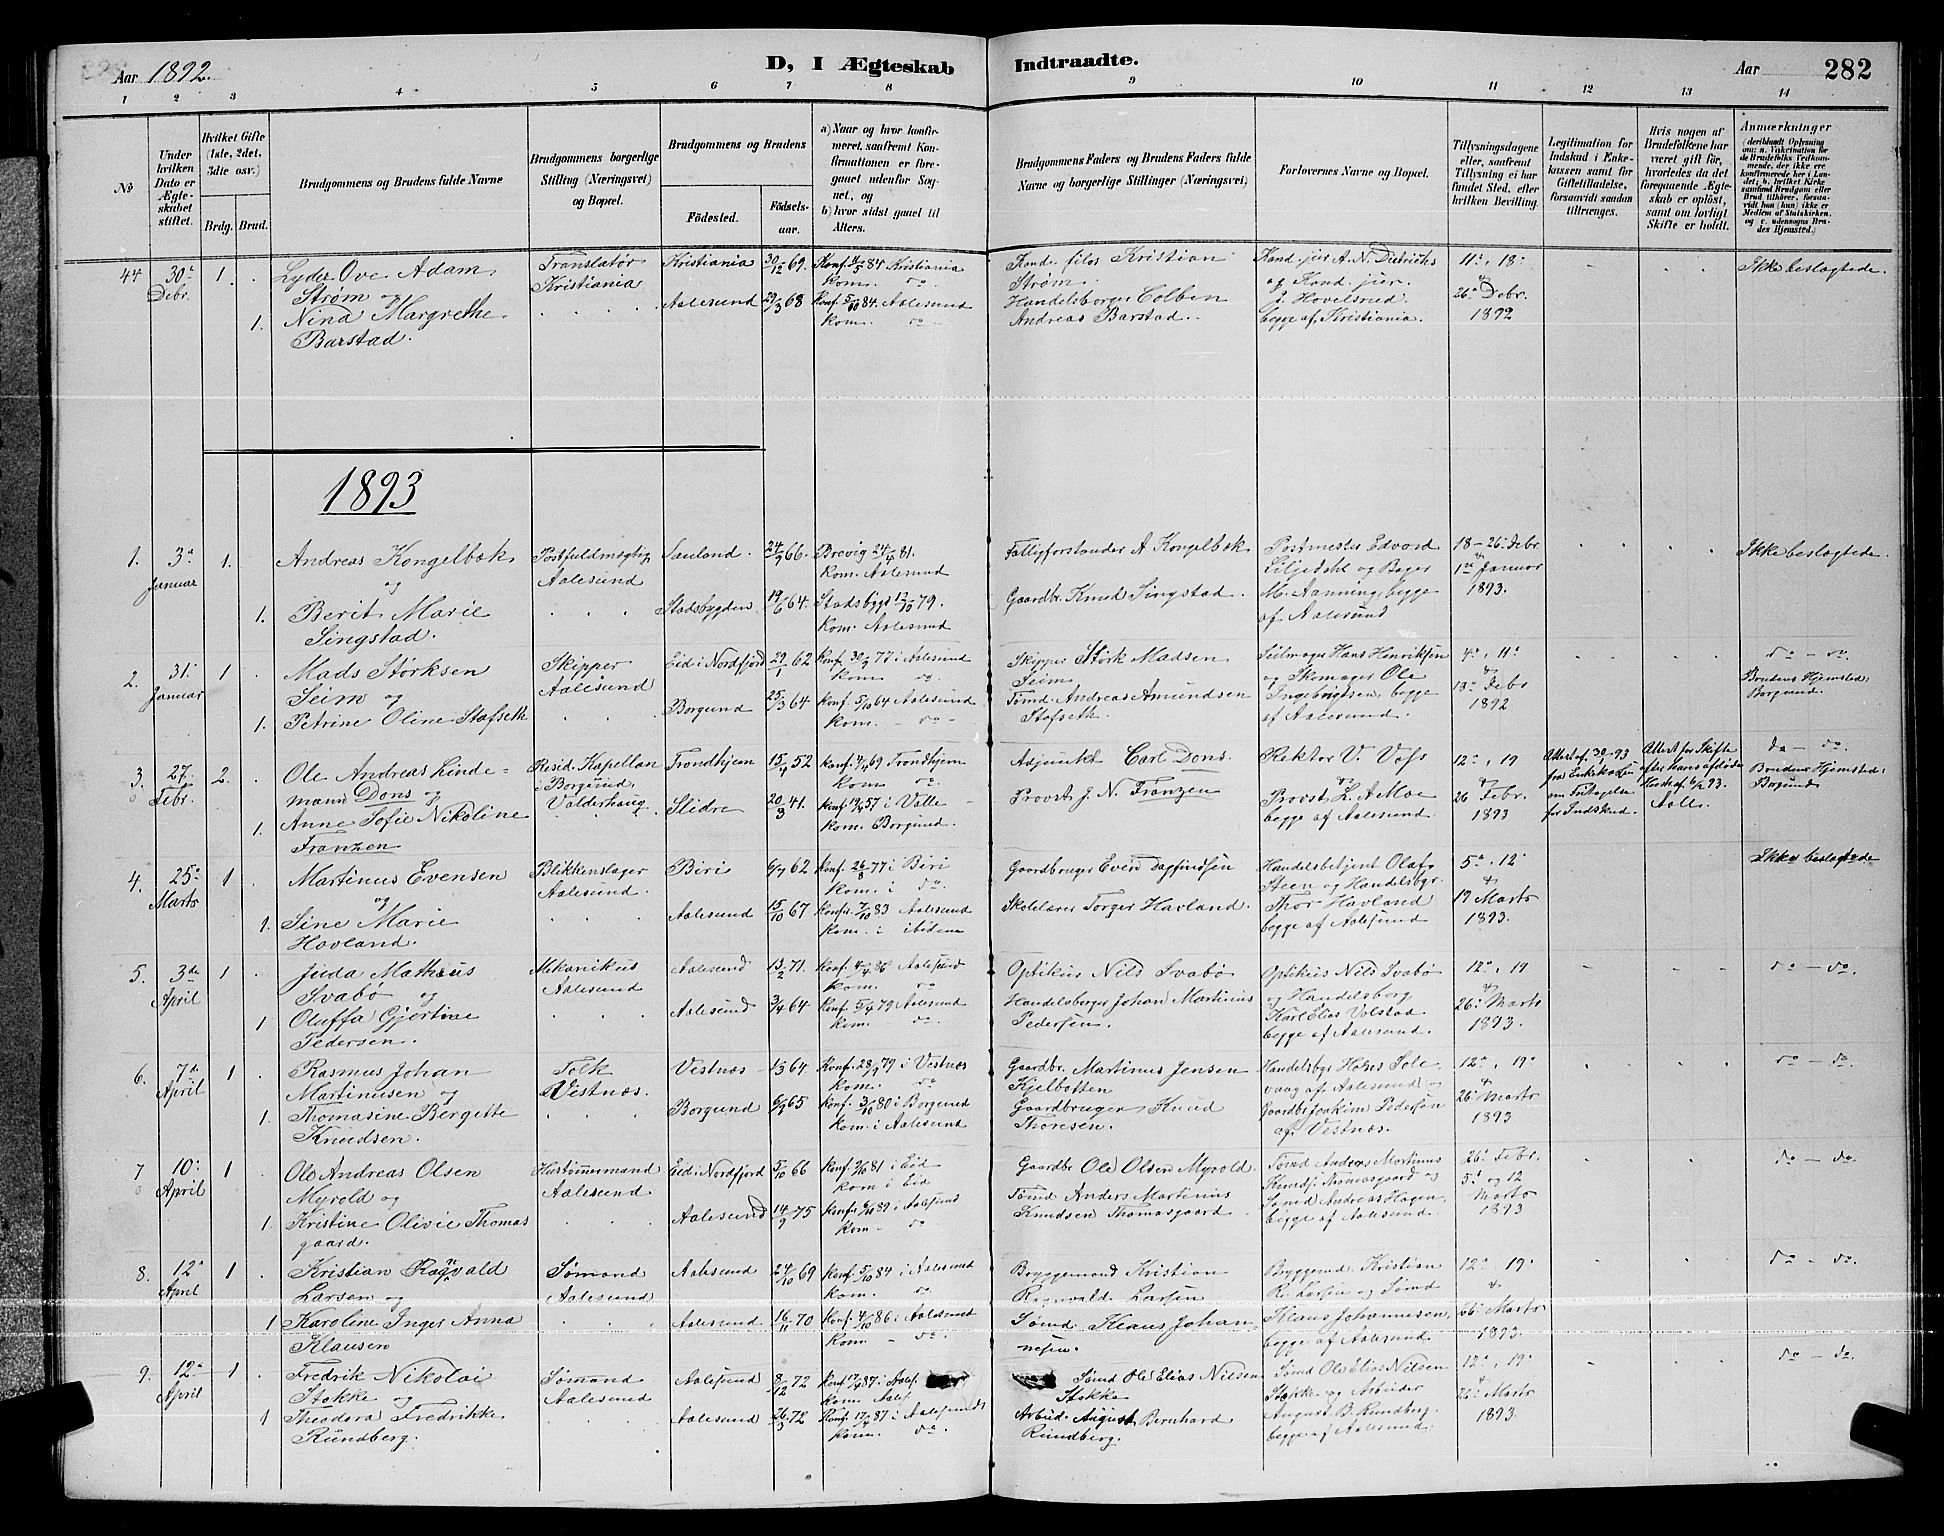 Aar 1892.
D, I Ægteskab Indtraadte.
Aar 282
1 2 3 4 5 6 7 8 9 10 11 12 13 14
No
Under hvilken Dato er Ægteskabet stiftet.
Hvilket Gifte (1ste, 2det, 3die osv.)
Brdg. Brud.
Brudgommens og Brudens fulde Navne
Brudgommens borgerlige Stilling (Næringsvei) og Bopæl.
Brudgommens og Brudens
Fødested. Fødselsaar.
a) Naar og hvor konfirmeret, saafremt Konfirmationen er foregaaet udenfor Sognet, og
b) hvor sidst gaaet til Alters.
Brudgommens Faders og Brudens Faders fulde Navne og borgerlige Stillinger (Næringsvei)
Forlovernes Navne og Bopæl.
Tillysningsdagene eller, saafremt Tillysning ei har fundet Sted, efter hvilken Bevilling.
Legitimation for Indskud i Enkekassen samt for Giftetilladelse, forsaavidt saadan tiltrænges.
Hvis nogen af Brudefolkene har været gift før, hvorledes da det foregaaende Ægteskab er opløst, samt om lovligt Skifte er holdt.
Anmærkninger
(deriblandt Oplysning om: a. Vakcination for de Brudefolks Vedkommende, der ikke ere konfirmerede her i Landet; b. hvilket Kirkesamfund Brudgom eller Brud tilhører, forsaavidt han (hun) ikke er Medlem af Statskirken, og c. udensogns Brudes Hjemsted.)
44 30' Debr. 1. Lyder Ove Adam Strøm og Translatør Kristiania Kristiania 30/12 69. Konf. 4/5 84 Kristiania Kom. do. Kand. filos Kristian Strøm. Kand. jur A. N. Dietrichs og Kand. jur. J. Hovelsrud begge af Kristiania. 11', 18' & 26' Debr. 1892 Ikke beslægtede.
1. Nina Margrethe Barstad. Aalesund 29/3 68 Konf. 5/10 84. Aalesund Kom. do Handelsborger Colben Andreas Barstad.
1893
1. 3' Januar 1. Andreas Kongelbæk og Postfuldmægtig Aalesund Sauland. 24/9 66. Brevig 24/4 81. Kom. Aalesund Fattigforstander A Kongelbæk Postmester Edvard Liljedahl og Bager M. Aanning, begge af Aalesund 18 - 26' Debr & 1' Januar 1893. Ikke beslægtede.
1. Berit Marie Singstad. Stadsbygden 19/6 64. Stadsbygd 12/10 79. Kom. Aalesund Gaardbr. Knud Singstad.
2. 31' Januar 1 Mads Størksen Seim og Skipper Aalesund Eid i Nordfjord 29/1 62 Konf. 30/9 77 i Aalesund Kom do. Skipper Størk Madsen Seim Seilmager Hans Henriksen og Skomager Ole Ingebrigtsen, begge af Aalesund. 4', 11' & 18' Debr 1892 do - do
1. Petrine Oline Stafseth Borgund 25/3 64 Konf. 5/10 64 Aalesund Kom. - do - Tømd. Andreas Amundsen Stafseth. Brudens Hjemsted: Borgund.
3. 27' Febr. 2. Ole Andreas Lindemann Dons og Resid. Kapellan i Borgund Valderhaug Trondhjem 15/4 52 Konf. 4/4 69 Trondhjem Kom do. Adjunkt Carl Dons. Rektor V. Voss & Provst L. A Moe begge af Aalesund. 12', 19 & 26 Febr. 1893 Attest af 30/1 93 fra Enkekassen om Fritagelse for Indskud. Attest for Skifte efter hans afdøde Hustru af 6/2 93. do - do.
1. Anne Sofie Nikoline Franzen Slidre 20/3 41. Konf 19/4 57 i Valle Kom. Borgund. Provst J. N. Franzen Brudens Hjemsted: Borgund.
4. 25' Marts 1 Martinus Evensen og Blikkenslager Aalesund. Biri 6/7 62 Konf. 26/8 77 i Biri Kom. i do. Gaardbruger Even Dagfindsen Handelsbetjent Olaf Steen og Handelsbgr. Thor Havland begge af Aalesund 5', 12' & 19 Marts 1893. Ikke beslægtede
1. Sine Marie Havland. Aalesund 15/10 67 Konfir. 7/10 83 Aalesund Kom. i ibidem Skolelærer Torger Havland.
5. 3de April 1 Juda Mathæus Svabø og Mekanikus Aalesund Aalesund 13/2 71. Konf. 4/4 86 Aalesund Kom. do Optikus Nils Svabø Optikus Nils Svabø og Handelsborg Karl Elias Volstad begge af Aalesund. 12', 19 & 26' Marts 1893. do - do.
1 Oluffa Gjertine Pedersen. Aalesund 3/4 64 Konf. 5/4 79 Aalesund Kom. - do. Handelsborger Johan Martinus Pedersen.
6. 7de April 1 Rasmus Johan Martinusen og Tolk Vestnæs. Vestnæs 64 Konf. 28/9 79 i Vestnæs Kom. do Gaardbr. Martinus Jensen Kjelbotten Handelsbgr af Aalesund og Gaardbr Joakim Pedersen af Vestnæs. 12', 19' & 26' Marts 1893 do - do.
1. Thomasine Bergitte Knudsen. Borgund 6/9 65 Konf. 3/10 80 i Borgund Kom. i Aalesund Gaardbruger Knud Thoresen.
7 10' April 1 Ole Andreas Olsen Myrold og Hustømmermand Aalesund Eid i Nordfjord 5/10 66 Konf. 81 i Eid Kom i Eid Gaardbr. Ole Olsen Myrold. Tømd Anders Martinus Knuds. Thomasgaard og Sømd Andreas Hagen, begge af Aalesund. 26' Febr. 5' og 12 Marts 1893 do - do.
1 Kristine Olivie Thomasgaard. Aalesund 14/9 75 Konfir. 89 i Aalesund Kom - do Tømd Anders Martinus Knudsen Thomasgaard
8. 12' April 1 Kristian Ragnvald Larsen og Sømand Aalesund Aalesund 24/10 69 Konf. 5/10 84 i Aalesund Kom. do Bryggemand Kristian Ragnvald Larsen Bryggemd. Kristian R. Larsen og Sømd Klaus Johannesen, begge af Aalesund 12', 19' & 26' Marts 1893. do - do.
1 Karoline Inger Anna Klausen Aalesund 16/11 70 Konf. 4/10 86 i Aalesund Kom - do. Sømd. Klaus Johannesen.
9. 12' April 1 Fredrik Nikolai Stokke og Sømand Aalesund Aalesund 8/12 72 Konf 87 i Aalesund Kom Aalesund Sømd Ole Elias Nilsen Stokke Sømd Ole Elias Nilsen Stokke og Arbeider August B. Rundberg. begge af Aalesund. 12', 19' & 26' Marts 1893. do - do.
1 Theodora Fredrikke Rundberg. Aalesund 26/3 72 Konf. 17/4 87 i Aalesund Kom. do Arbeid. August Bernhard Rundberg.